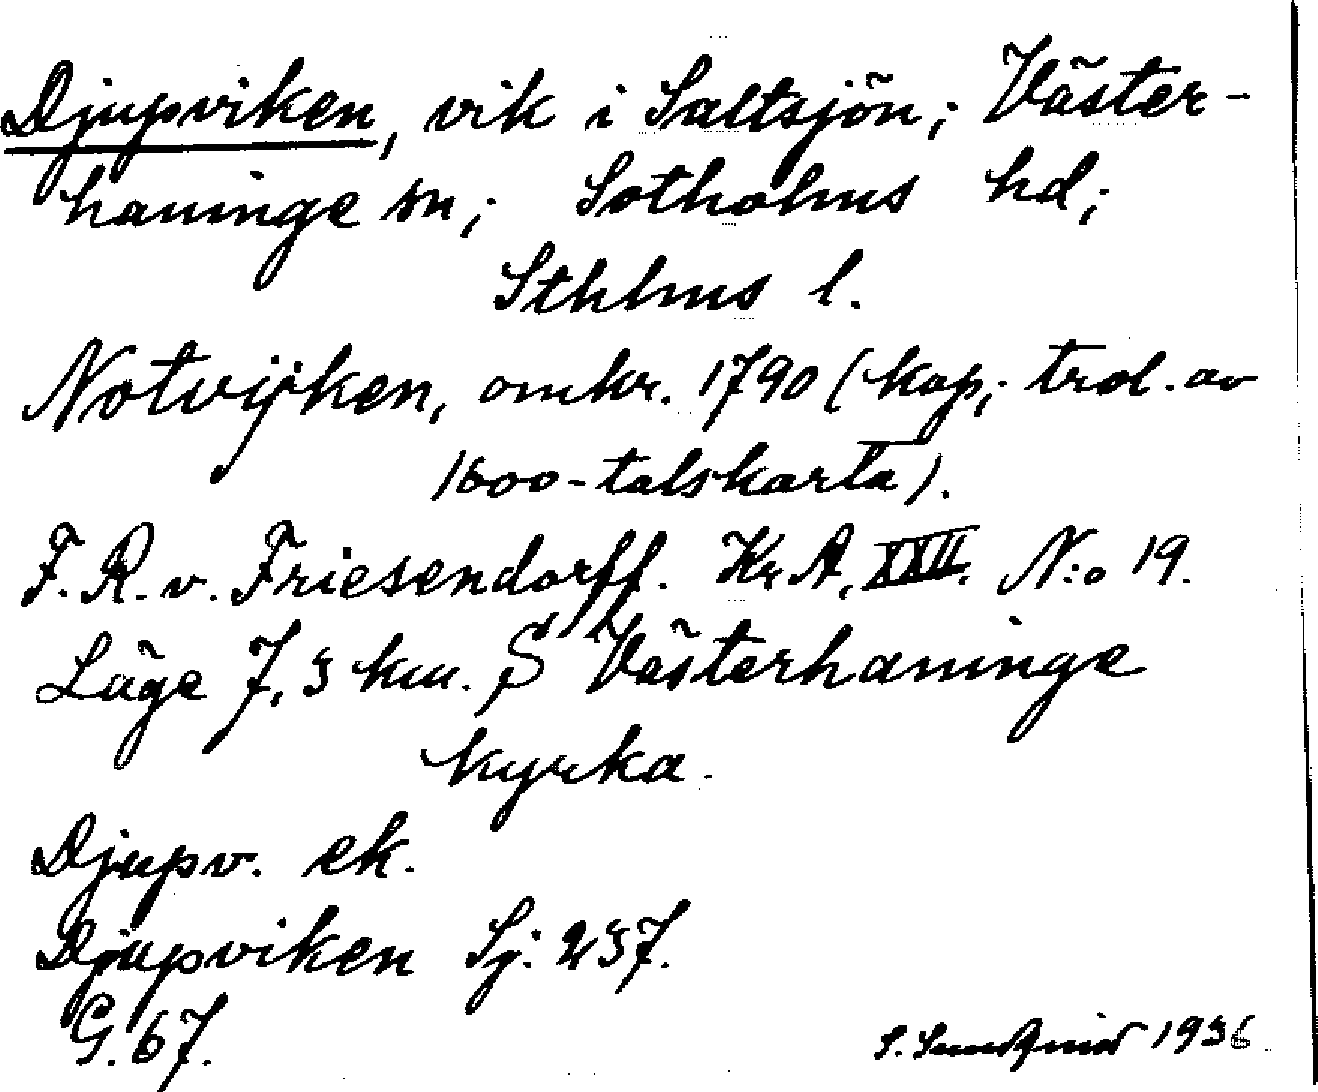 Djupviken, vik i Saltsjön; Väster-
haninge sn; Sotholms hd;
Sthlms l.
Notvijken, omkr. 1790 (kop; trol. av
1600-talskarta).
F. R. v. Friesendorff. Kr A, XXII. N:o 19.
Läge 7,3 km. S Västerhaninge
kyrka.
Djupv. ek.
Djupviken Sj: 237.
G. 67.
S. Sundqvist 1936